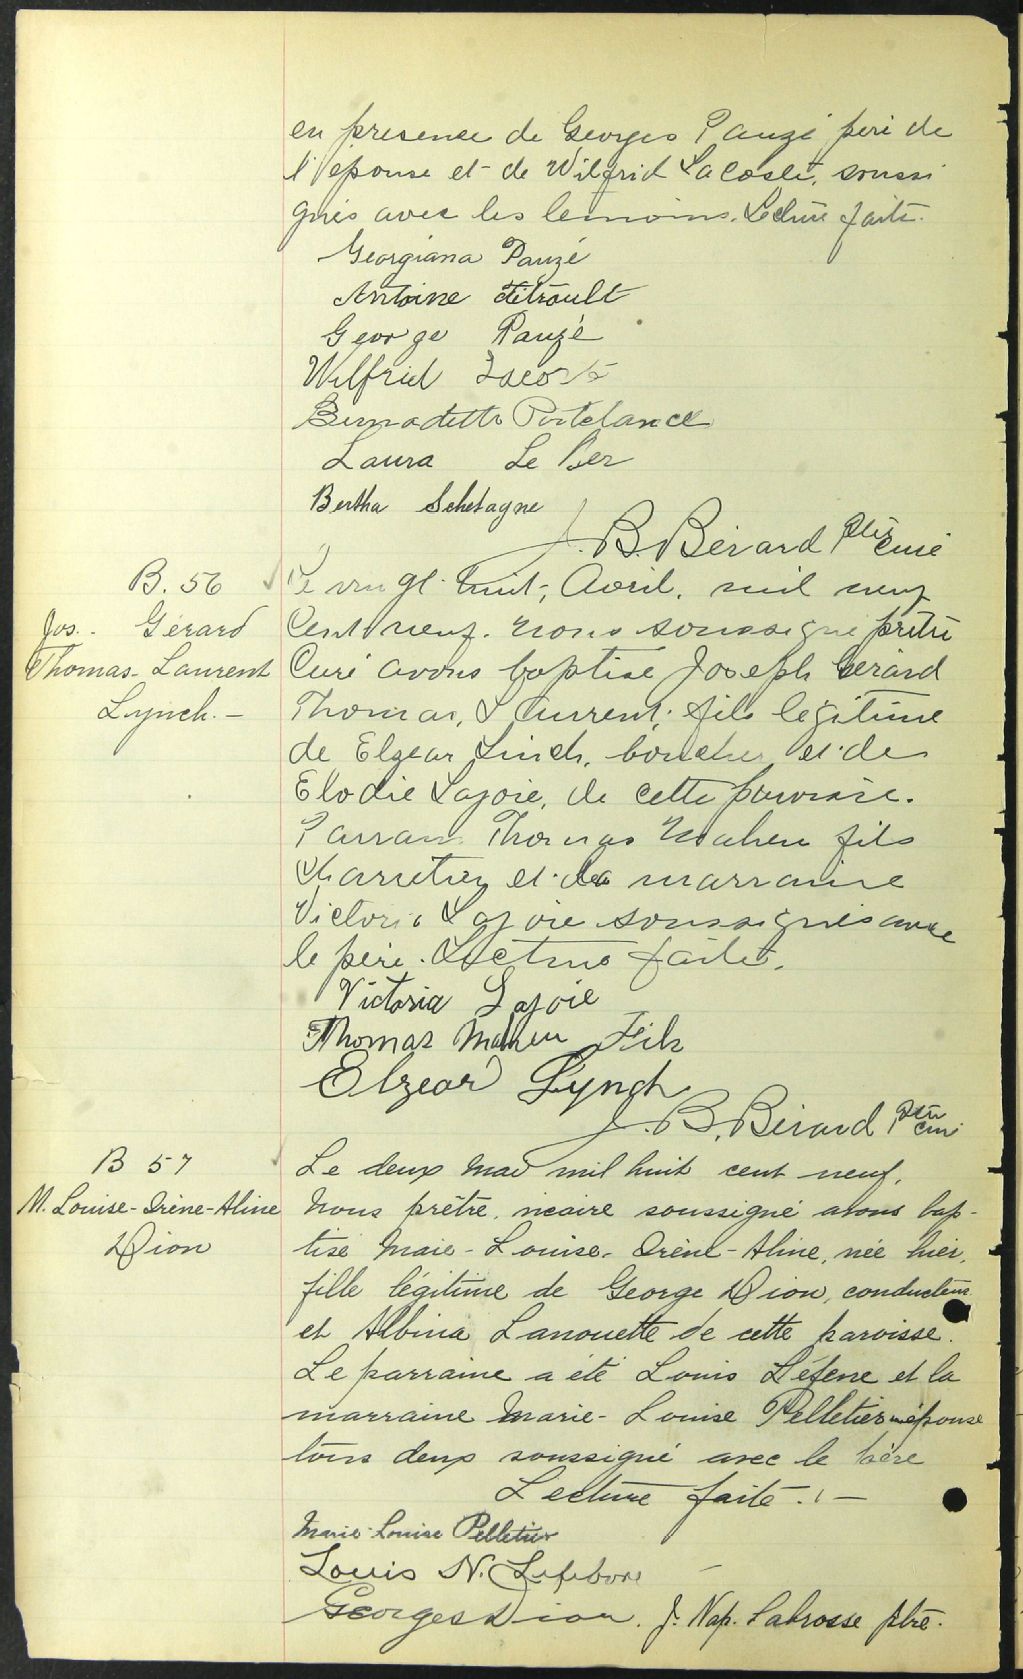 en presence de Georges Pauzé père de
l'epouse et de Wilfrid Lacoste, soussi
gnés avec les temoins. Lecture faite.
Georgiana Pauzé
Antoine Tétrault
George Pauzé
Wilfrid Lacoste
Bernadette Portelance
Laura Le Ber
Bertha Schetagne
J. B. Bérard Ptre curé
B. 56
Jos. Gérard
Thomas-Laurent
Lynch. -
Le vingt-huit, Avril, mil neuf
Cent neuf. nous soussigné prêtre
Curé avons baptisé Joseph Gérard
Thomas, Laurent, fils légitime
de Elzear Linch, boucher et de
Elodie Lajoie, de cette paroisse.
Parrain Thomas Maheu fils
charretier et la marraine
Victoria Lajoie soussignés avec
le père. Lecture faite.
Victoria Lajoie
Thomas Maheu Fils
Elzear Lynch
J. B. Bérard Ptre curé
B 57
M. Louise-Irène-Aline
Dion
Le deux Mai mil huit cent neuf,
Nous prêtre, vicaire soussigné avons bap-
tisé Marie-Louise-Irène-Aline, née hier,
fille légitime de George Dion, conducteur
et Albina Lanouette de cette paroisse.
Le parraine a été Louis et la
marraine Marie-Louise Pelletier épouse
tous deux soussigné avec le père
Lecture faite. -
Marie-Louise Pelletier
Louis N. Lefebvre
Georges Dion. J. Nap. Labrosse ptre.